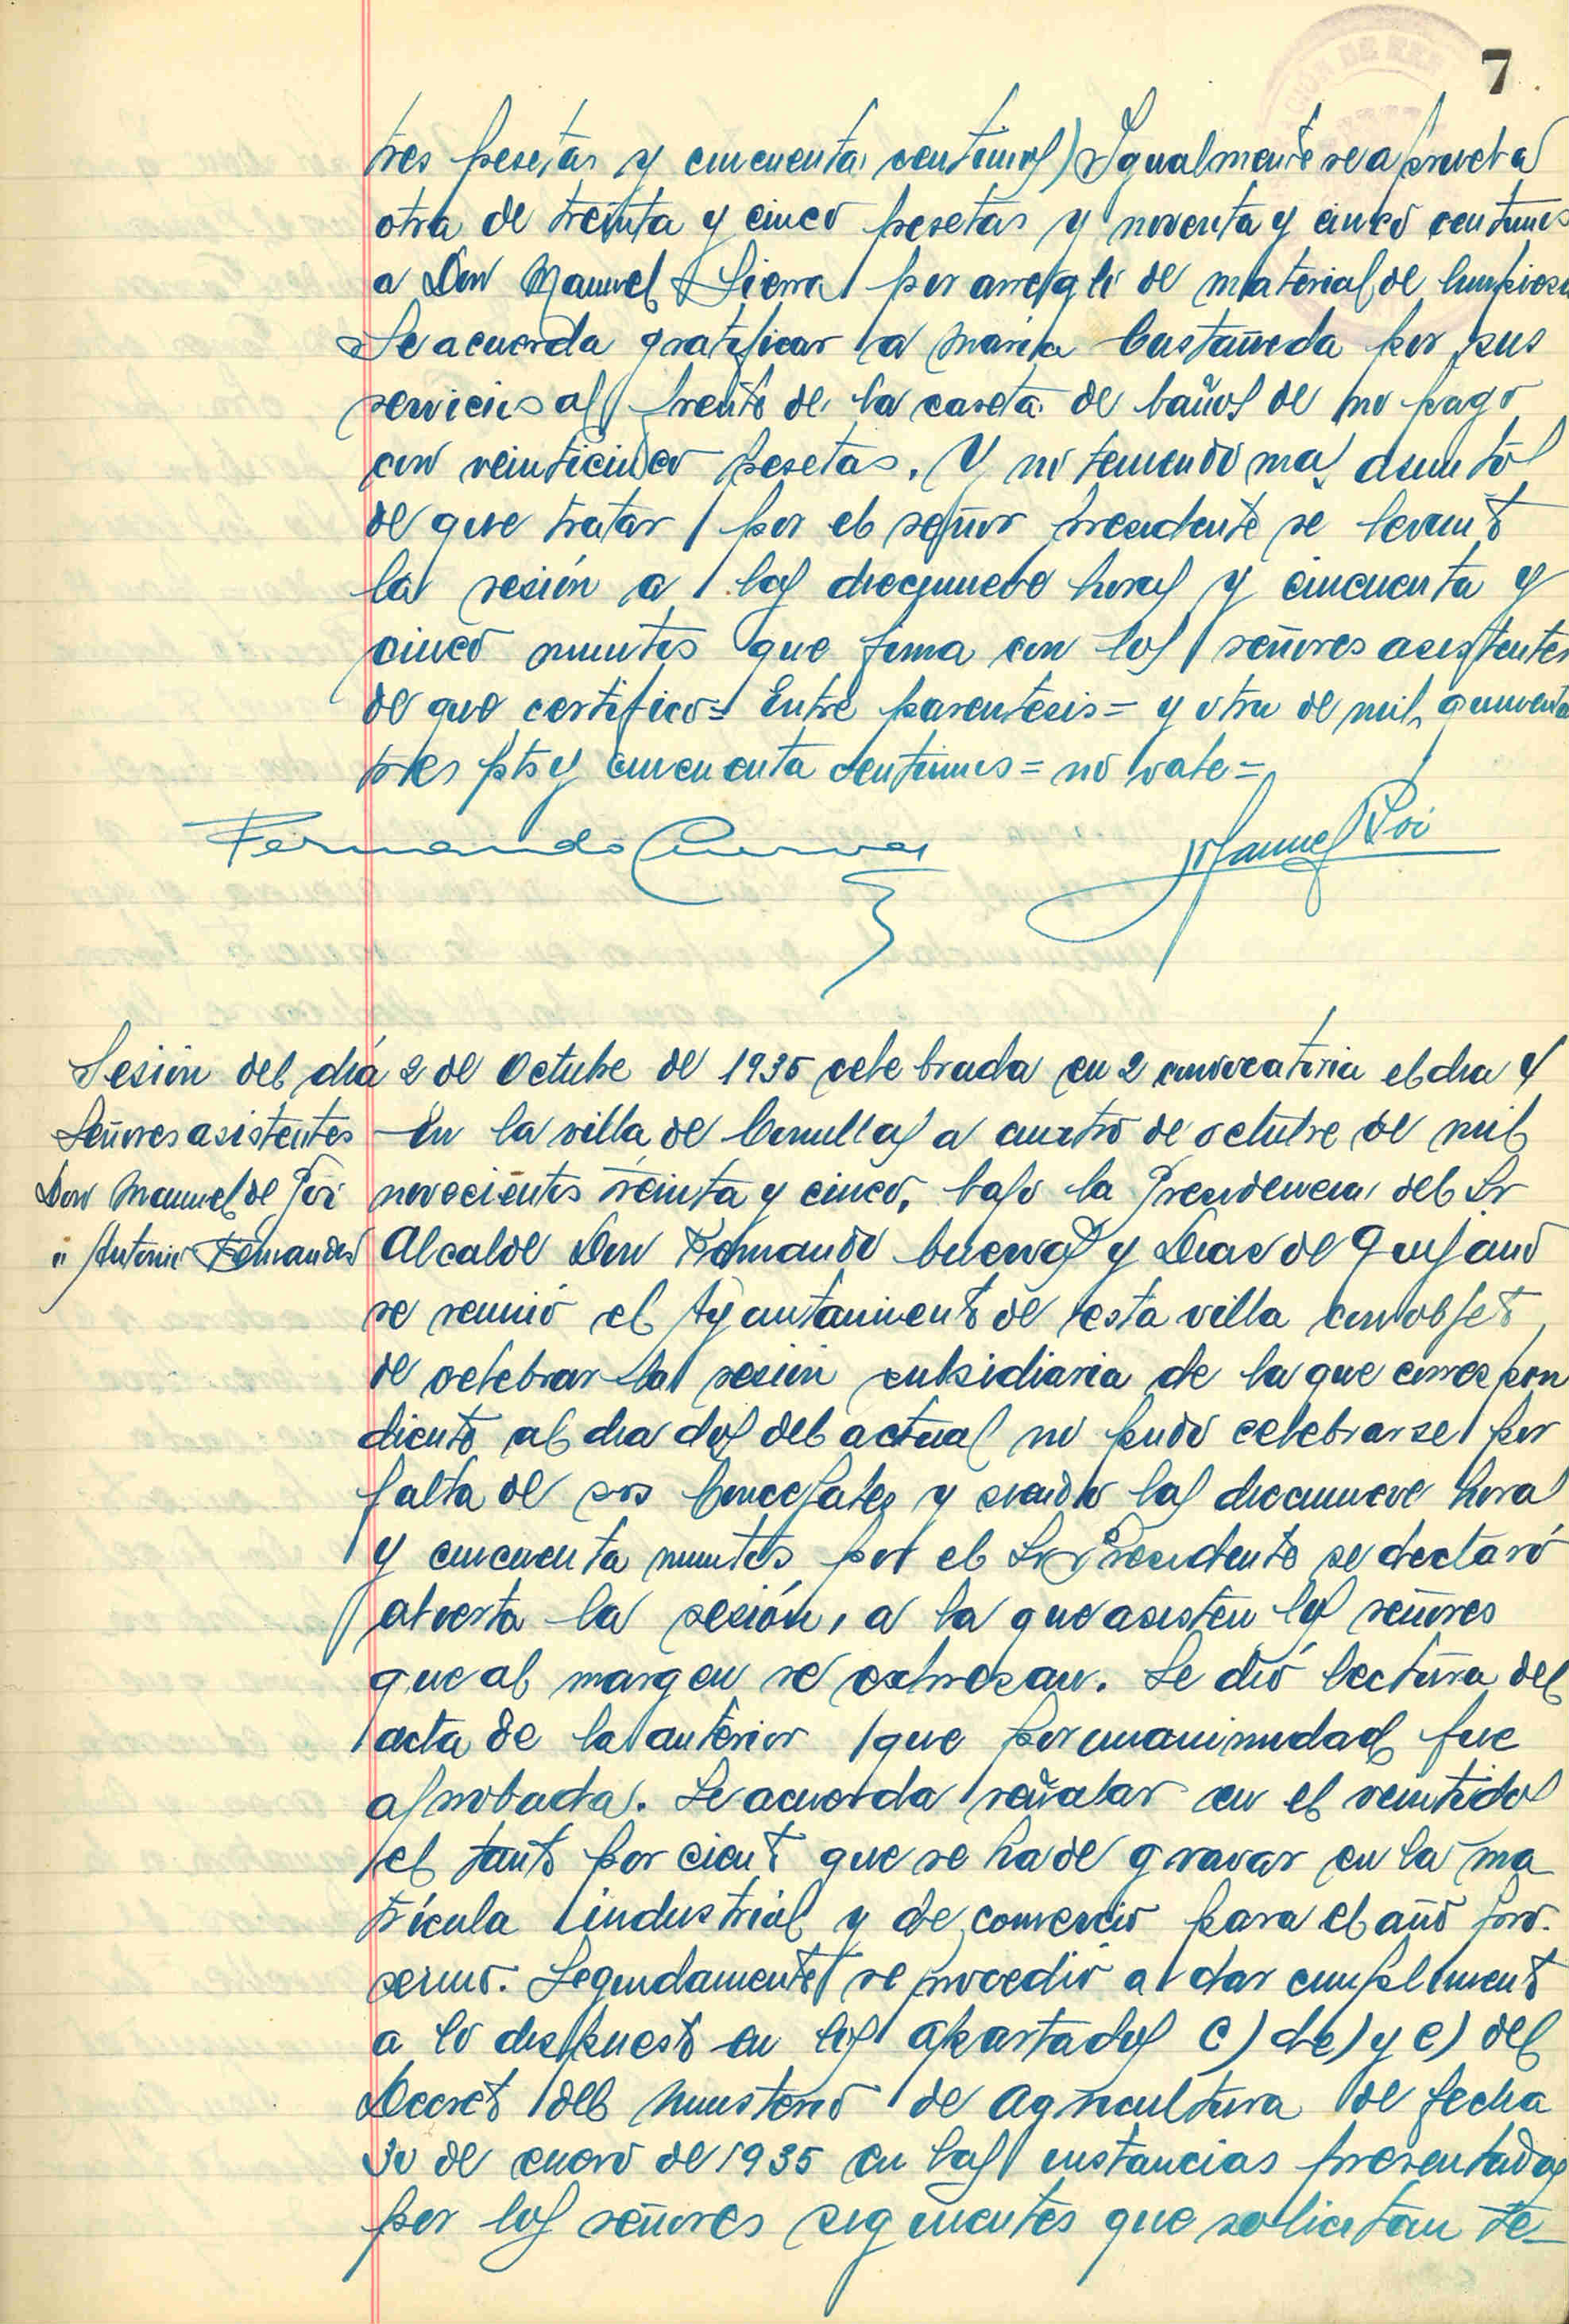 7
tres pesetas y cincuenta centimos) Igualmente se aprueba
otra de treinta y cinco pesetas y noventa y cinco centimos
a Don Manuel Sierra por arreglo de material de limpieza
Se acuerda gratificar a Maria Castañeda por sus
servicios al frente de la caseta de baños de no pago
con veinticinco pesetas. Y no teniendo mas asuntos
de que tratar por el señor presidente se levantó
la sesión a las diecinueve horas y cincuenta y
cinco minutos que firma con los señores asistentes
de que certifico = Entre parentesis = y otra de mil quinientas
tres pts y cincuenta centimos = no vale =
Fernando Cuevas
Manuel Poi
Sesión del dia 2 de Octubre de 1935 celebrada en 2 convocatoria el dia 4
Señores asistentes
Don Manuel de Poi
" Antonio Fernandez
En la villa de Comillas a cuatro de octubre de mil
novecientos treinta y cinco, bajo la Presidencia del Sr
Alcalde Don Fernando Cuevas y Diaz de Quijano
se reunió el Ayuntamiento de esta villa con objeto
de celebrar la sesión subsidiaria de la que correspon
diente al dia dos del actual no pudo celebrarse por
falta de sres Concejales y siendo las diecinueve horas
y cincuenta minutos por el Sr Presidente se declaró
abierta la sesión, a la que asisten los señores
que al margen se expresan. Se dió lectura del
acta de la anterior que por unanimidad fue
aprobada. Se acuerda señalar en el veintidos
el tanto por ciento que se ha de gravar en la ma
trícula industrial y de comercio para el año pro-
ximo. Seguidamente se procedió a dar cumplimento
a lo dispuesto en los apartados c) de) y e) del
Decreto del Ministerio de Agricultura de fecha
30 de enero de 1935 en las instancias presentadas
por los señores siguientes que solicitan te-